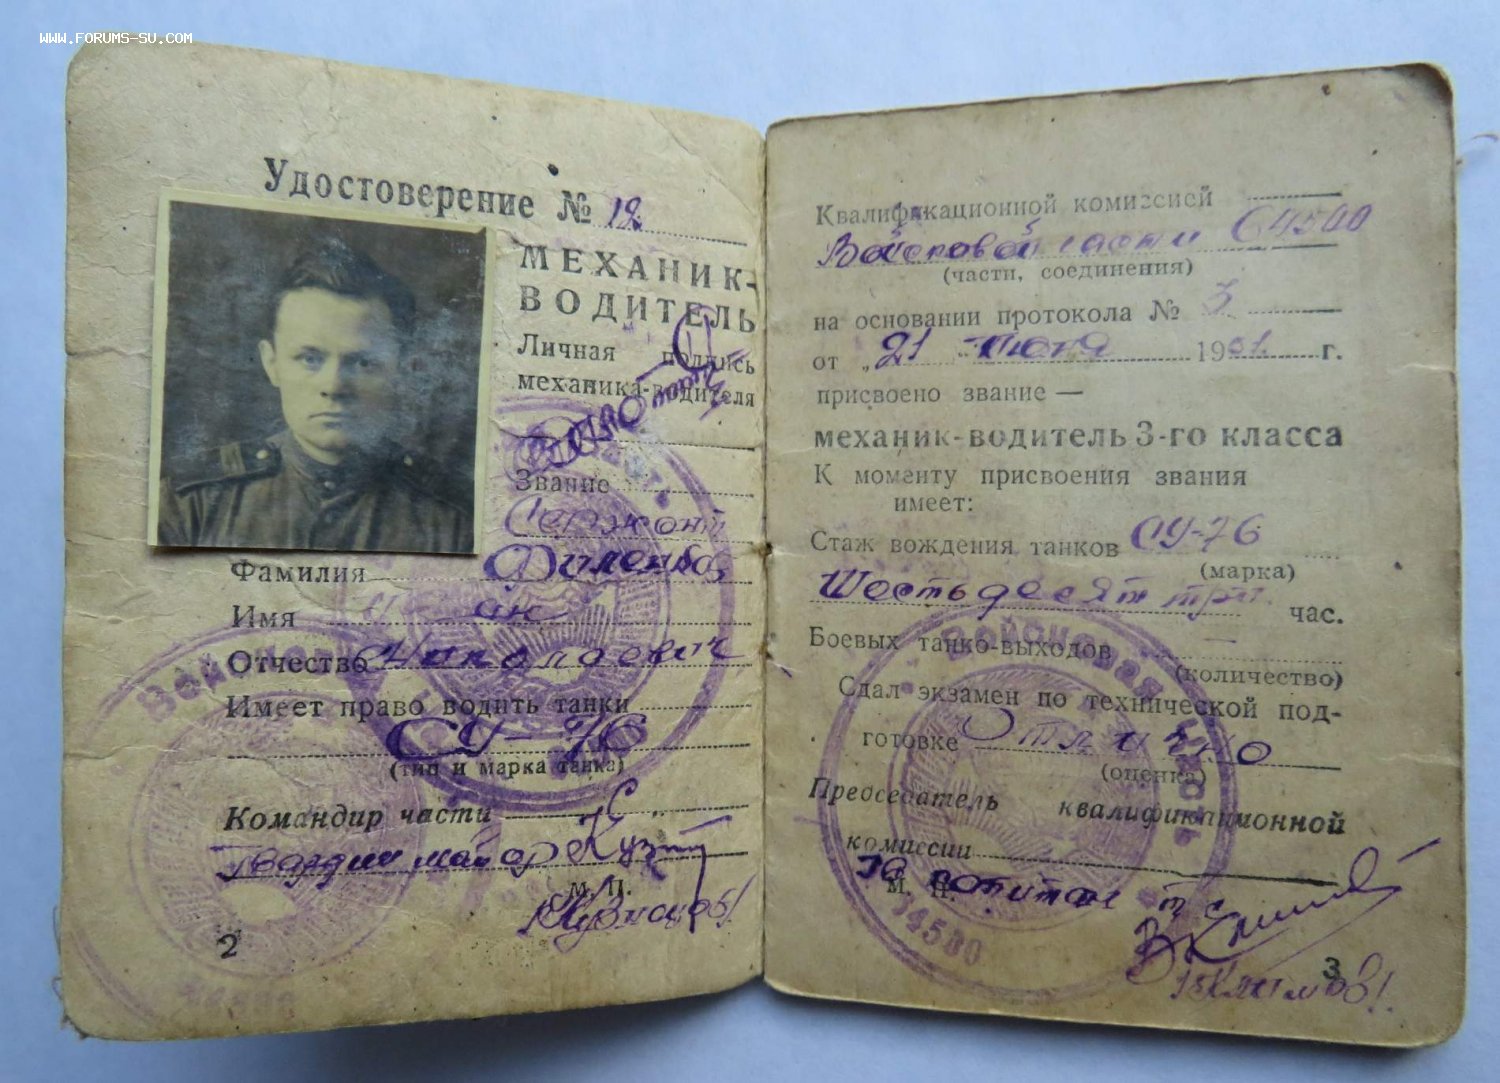 WWW.FORUMS-SU.COM
Удостоверение № 12
МЕХАНИК-
ВОДИТЕЛЬ
Личная подпись
механика-водителя
Звание
Сержант
Фамилия
Имя
Отчество Николаевич
Имеет право водить танки
СУ-76
(тип и марка танка)
Командир части
Гвардии майор
М. П.
/Кузнецов/
2
Квалификационной комиссией
Войсковой части
(части, соединения)
на основании протокола № 3
от „21“ июня 1951 г.
присвоено звание —
механик-водитель 3-го класса
К моменту присвоения звания
имеет:
Стаж вождения танков СУ-76
(марка)
Шестьдесят три час.
Боевых танко-выходов —
(количество)
Сдал экзамен по технической под-
готовке Отлично
(оценка)
Председатель квалификационной
комиссии
гв капитан т/с
М. П.
/Климов/
3
Войсковая часть